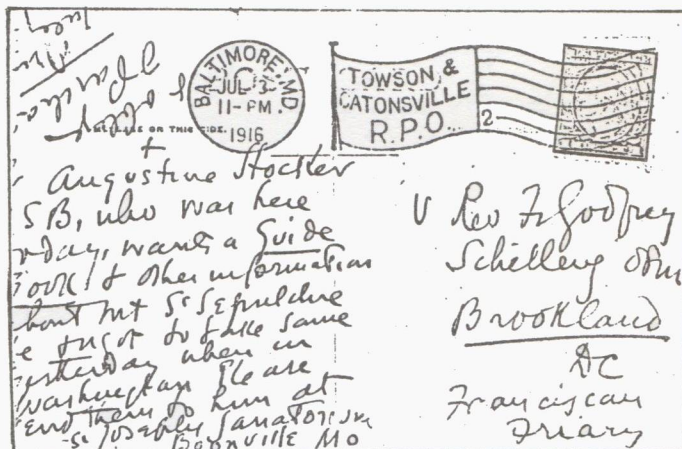 BALTIMORE, MD.
JUL 3
11-PM
1916
TOWSON &
CATONSVILLE
R.P.O.
2
ON THIS SIDE.
Augustine Hoester
SB, who was here
day, wants a Guide
Book & other information
bout Mt St Sepulchre
e forgot to take same
sterday when in
Washington Please
end them to him at
St Josephs Sanatorium
Boonville Mo
V Rev Fr Godfrey
Schilling ofm
Brookland
DC
Franciscan
Friary